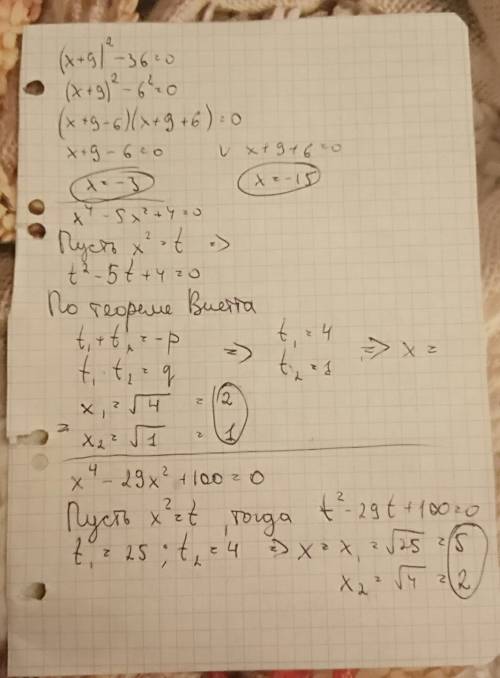 (x+9)² - 36 = 0
(x+9)² - 6² = 0
(x+9-6)(x+9+6) = 0
x+9-6=0 ∨ x+9+6=0
x=-3 x=-15
x⁴ - 5x² + 4 = 0
Пусть x² = t =>
t² - 5t + 4 = 0
По теореме Виетта
t₁ + t₂ = -p => t₁ = 4 => x =
t₁ · t₂ = q t₂ = 1
= x₁ = √4 = 2
x₂ = √1 = 1
x⁴ - 29x² + 100 = 0
Пусть x² = t, тогда t² - 29t + 100 = 0
t₁ = 25 ; t₂ = 4 => x = x₁ = √25 = 5
x₂ = √4 = 2